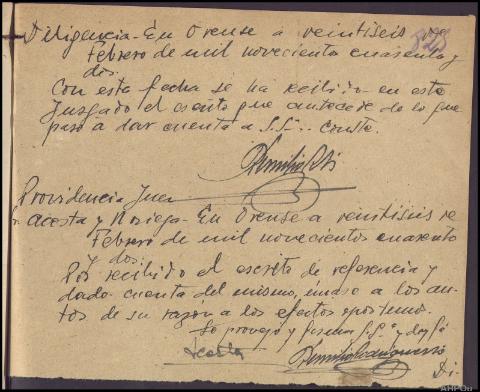 Diligencia - En Orense a veintiseis de
Febrero de mil novecientos cuarenta y
dos.
Con esta fecha se ha recibido en este
Juzgado el escrito que antecede de lo que
paso a dar cuenta a S.Sª.. conste.
Providencia Juez
Sr. Acosta y Noriega - En Orense a veintiseis de
Febrero de mil novecientos cuarenta
y dos.
Por recibido el escrito de referencia y
dada cuenta del mismo, únase a los au-
tos de su razón a los efectos oportunos.
Lo proveyó y firma S.Sª y doy fé
Acosta
Di.
AHPOu